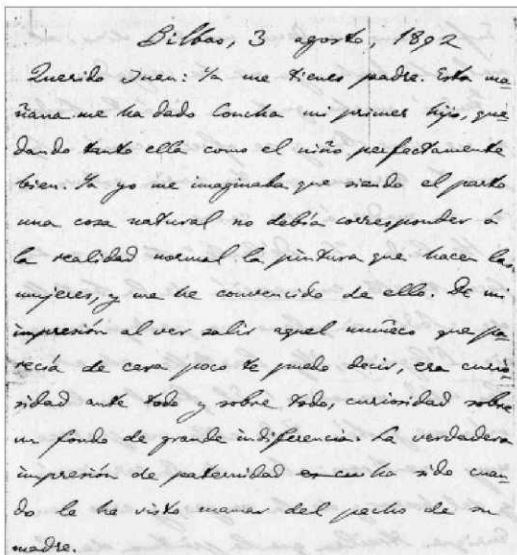 Bilbao, 3 agosto, 1892
Querido Juan: Ya me tienes padre. Esta ma-
ñana me ha dado Concha mi primer hijo, que-
dando tanto ella como el niño perfectamente
bien. Ya yo me imaginaba que siendo el parto
una cosa natural no debía corresponder á
la realidad normal la pintura que hacen las
mujeres, y me he convencido de ello. De mi
impresión al ver salir aquel muñeco que pa-
recía de cera poco te puedo decir, era curio-
sidad ante todo y sobre todo, curiosidad sobre
un fondo de grande indiferencia. La verdadera
impresión de paternidad ha sido cuan-
do le he visto mamar del pecho de su
madre.